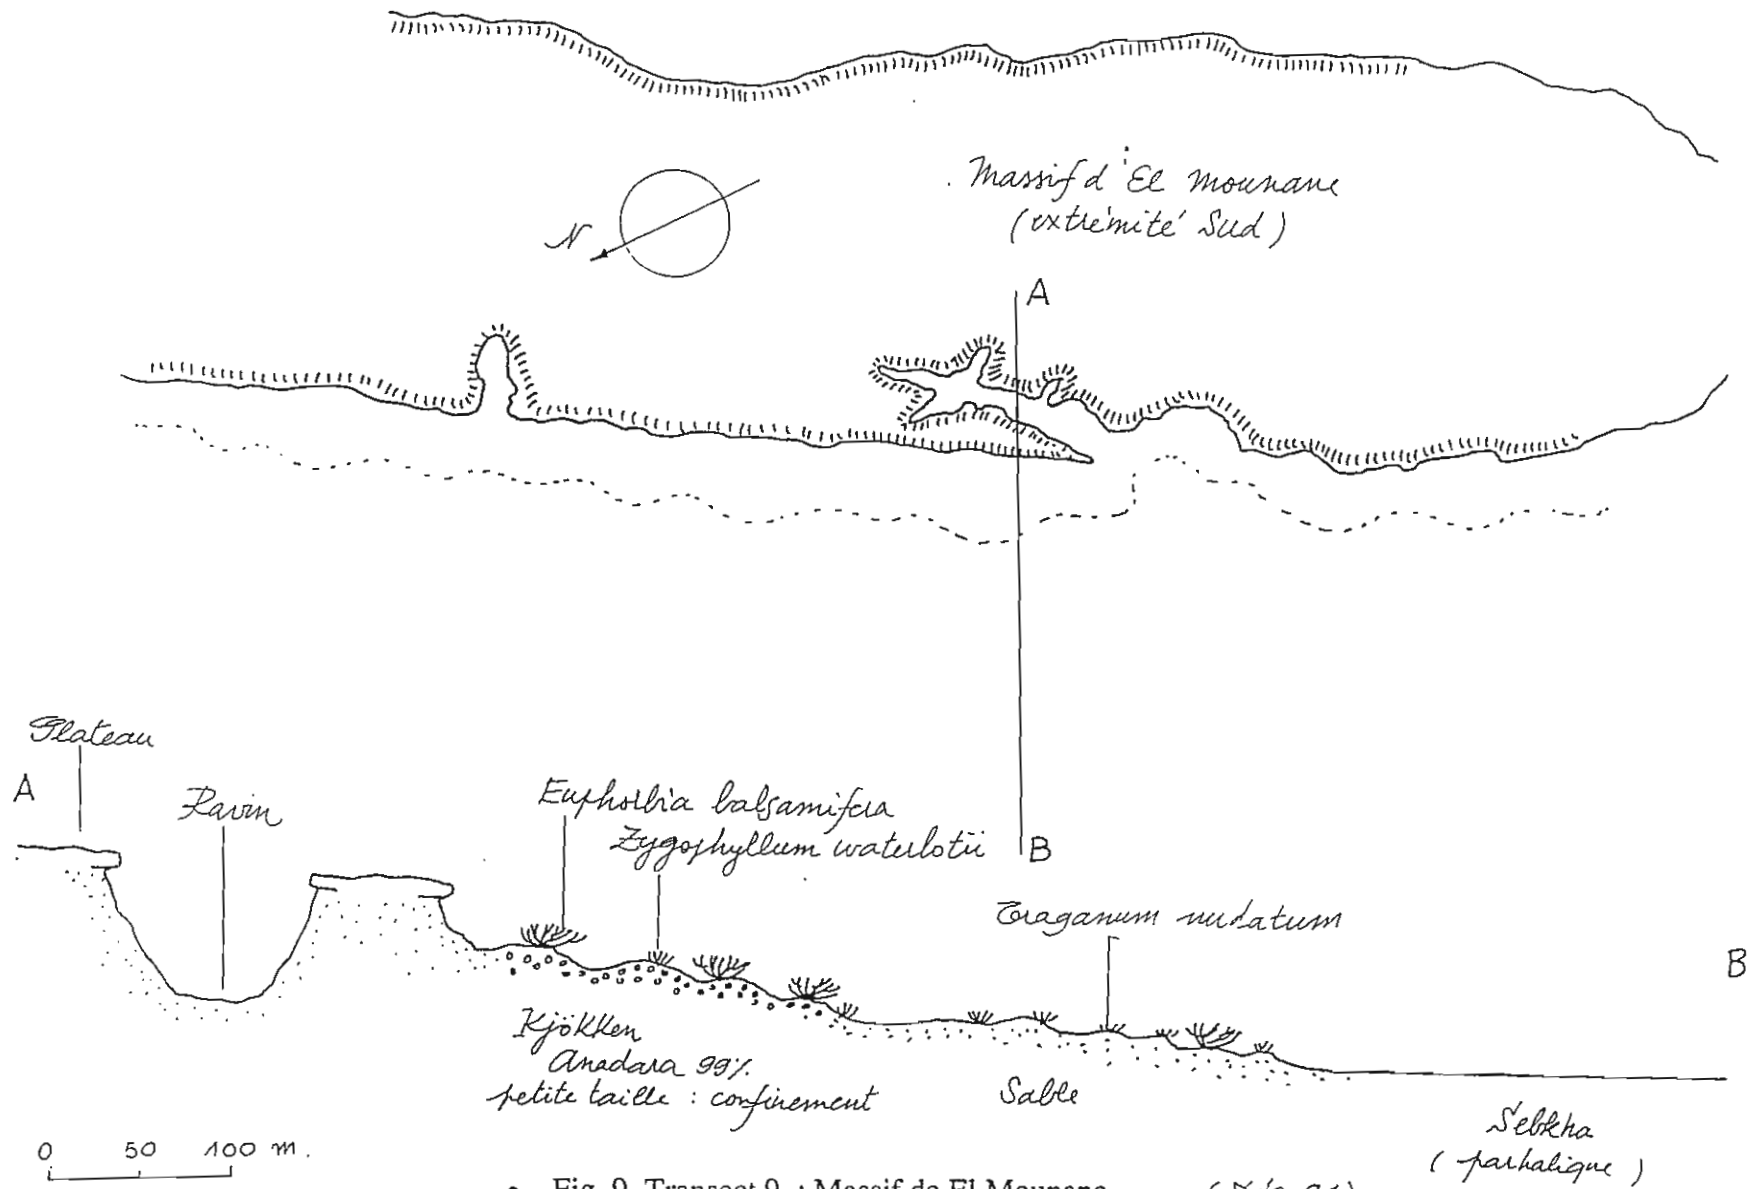 Massif d'El Mounane
(extrémité Sud)
N
A
B
Plateau
A
Ravin
Euphorbia balsamifera
Zygophyllum waterlotii
Traganum nudatum
B
Kjökken
Anadara 99%
petite taille : confinement
Sable
Sebkha
0 50 100 m.
Fig. 9. Transect 9. : Massif de El Mounane